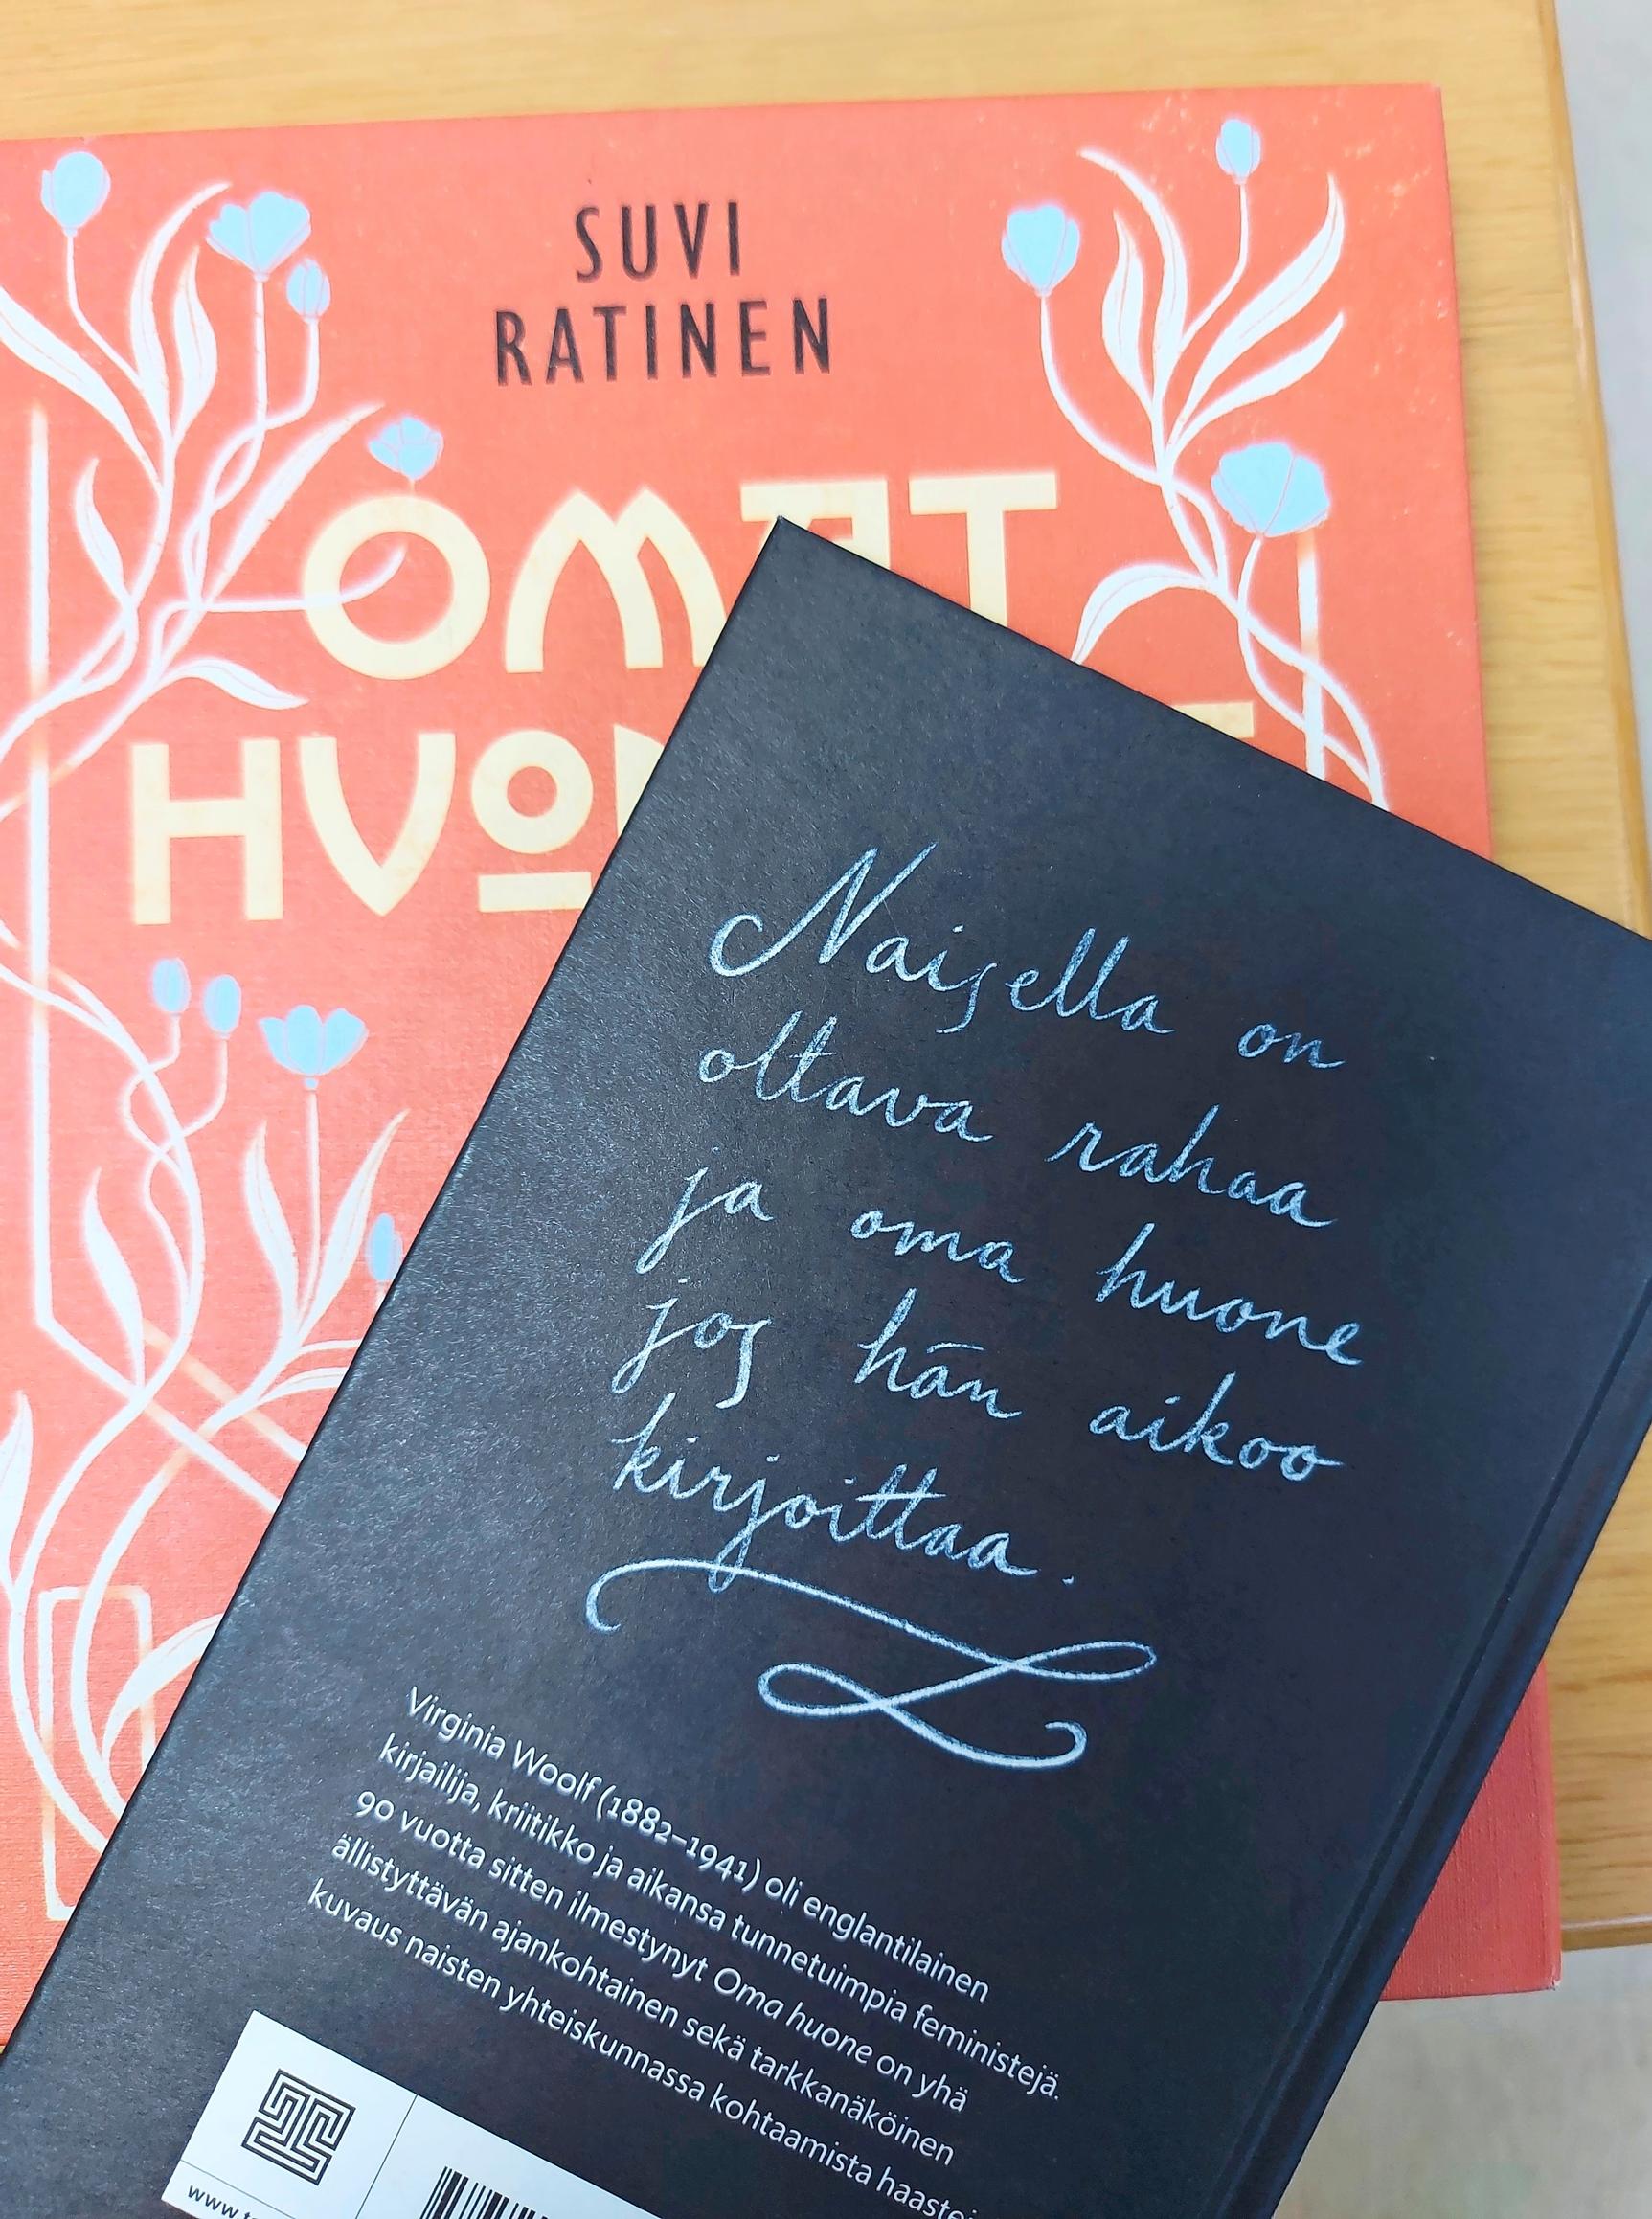 SUVI
RATINEN
OMAT
Naisella on
oltava rahaa
ja oma huone
jos hän aikoo
kirjoittaa.
Virginia Woolf (1882–1941) oli englantilainen
kirjailija, kriitikko ja aikansa tunnetuimpia feministejä.
90 vuotta sitten ilmestynyt Oma huone on yhä
ällistyttävän ajankohtainen sekä tarkkanäköinen
kuvaus naisten yhteiskunnassa kohtaamista